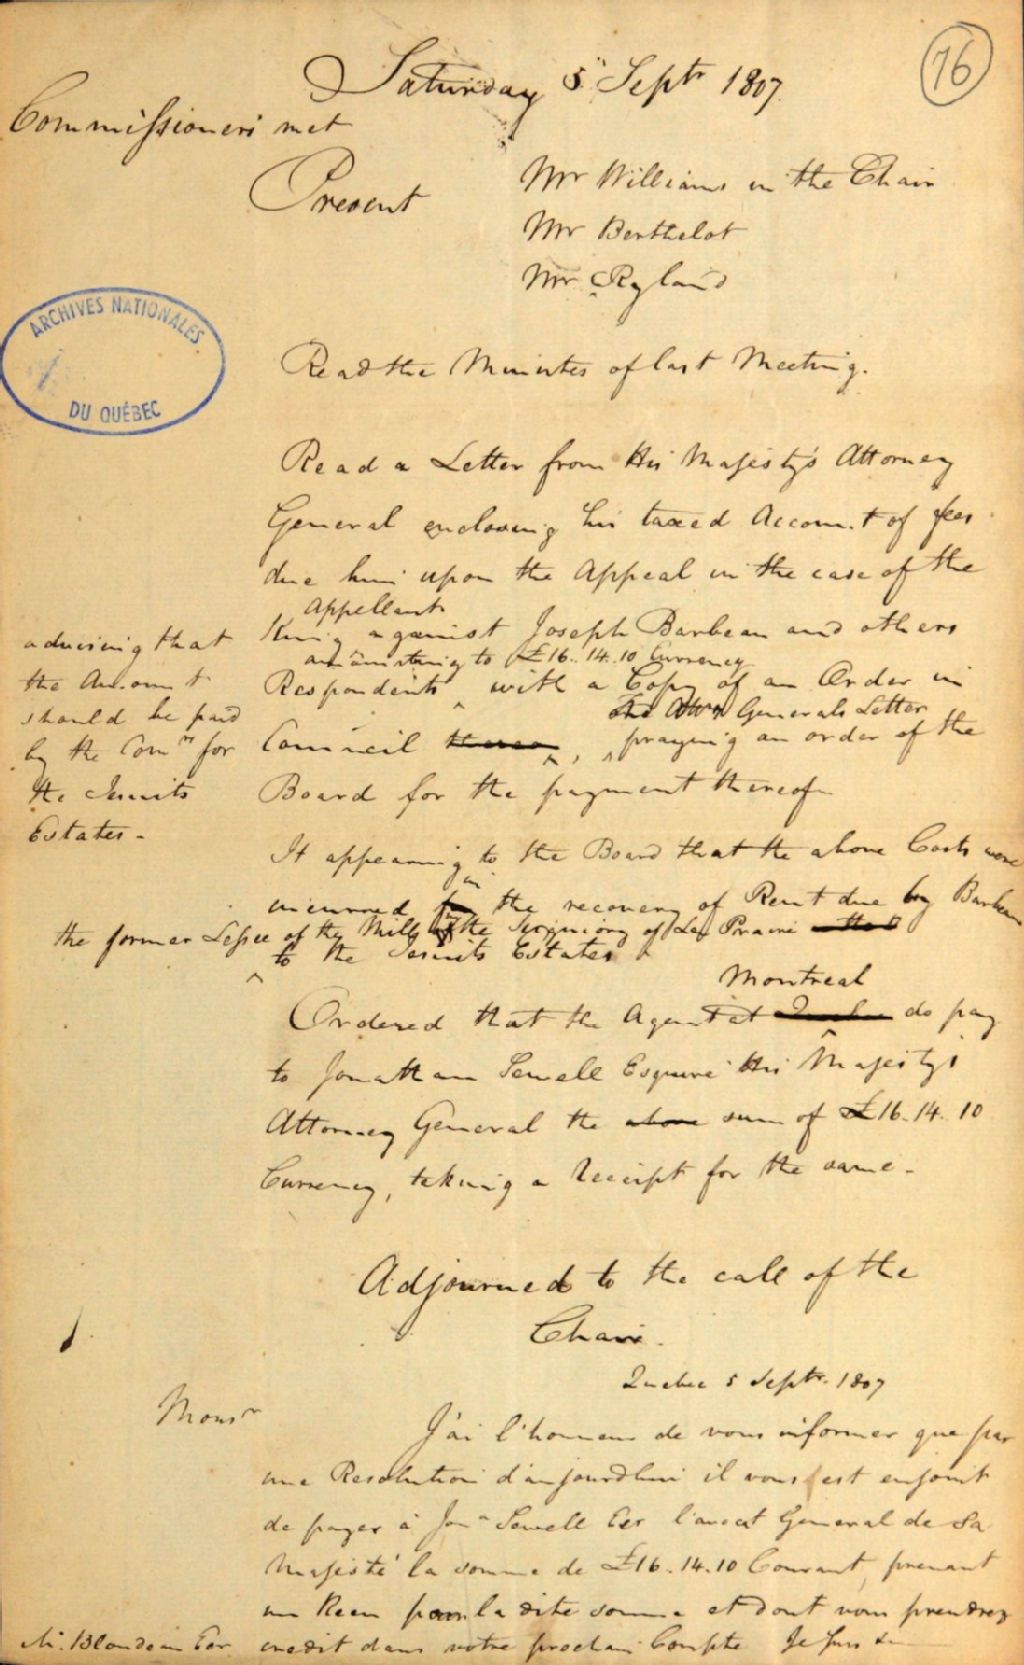 76
Saturday 5 Septr 1807
Commissioners met
Present
Mr Williams in the Chair
Mr Berthelot
Mr Ryland
ARCHIVES NATIONALES
DU QUÉBEC
Read the Minutes of last Meeting.
Read a Letter from His Majesty's Attorney
General enclosing his taxed Account of fees
due him upon the Appeal in the case of the
Appellant
King against Joseph Barbeau and others
amounting to £16..14.10 Currency
Respondents with a Copy of an Order in
The Attry Generals Letter
Council thereon, praying an order of the
Board for the payment thereof
advising that
the Amount
should be paid
by the Comrs for
the Jesuits
Estates-
It appearing to the Board that the above Costs were
in
incurred for the recovery of Rent due by Barbeau
the former Lessee of the Mills of the Seigniory of La Prairie
to the Jesuits Estates
Montreal
Ordered that the Agent at Quebec do pay
to Jonathan Sewell Esquire His Majesty's
Attorney General the above sum of £16.14.10
Currency, taking a Receipt for the same-
Adjourned to the call of the
Chair.
Quebec 5 Septr. 1807
Monsr
J'ai l'honneur de vous informer que par
une Resolution d'aujourdhui il vous est enjoint
de payer à Jonn Sewell Esr l'avocat General de Sa
Majesté la somme de £16.14.10 Courant, prenant
un Recu pour la dite somme et dont vous prendrez
credit dans votre prochain Compte Je suis &c
M. Blondeau Esr